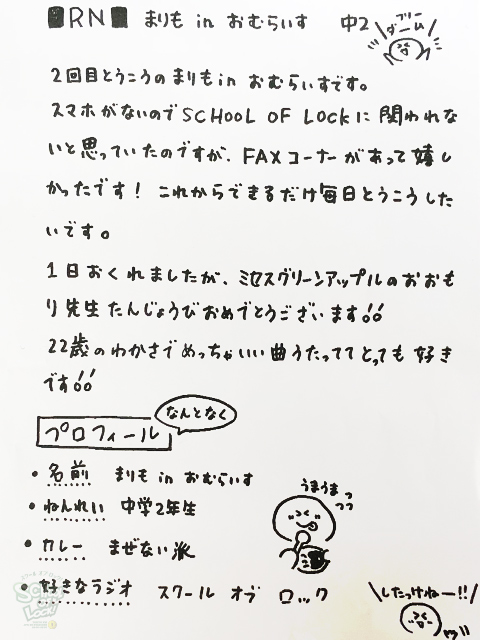 RN まりも in おむらいす 中2
フリーダーム
2回目とうこうのまりも in おむらいすです。
スマホがないのでSCHOOL OF LOCKに関われな
いと思っていたのですが、FAXコーナーがあって嬉し
かったです! これからできるだけ毎日とうこうした
いです。
1日おくれましたが、ミセスグリーンアップルのおおも
り先生たんじょうびおめでとうございます!!
22歳のわかさでめっちゃいい曲うたっててとっても好き
です!!
なんとなく
プロフィール
・名前 まりも in おむらいす
うまうまっっっ
・ねんれい 中学2年生
・カレー まぜない派
好きなラジオ スクール オブ ロック
したっけねー!!